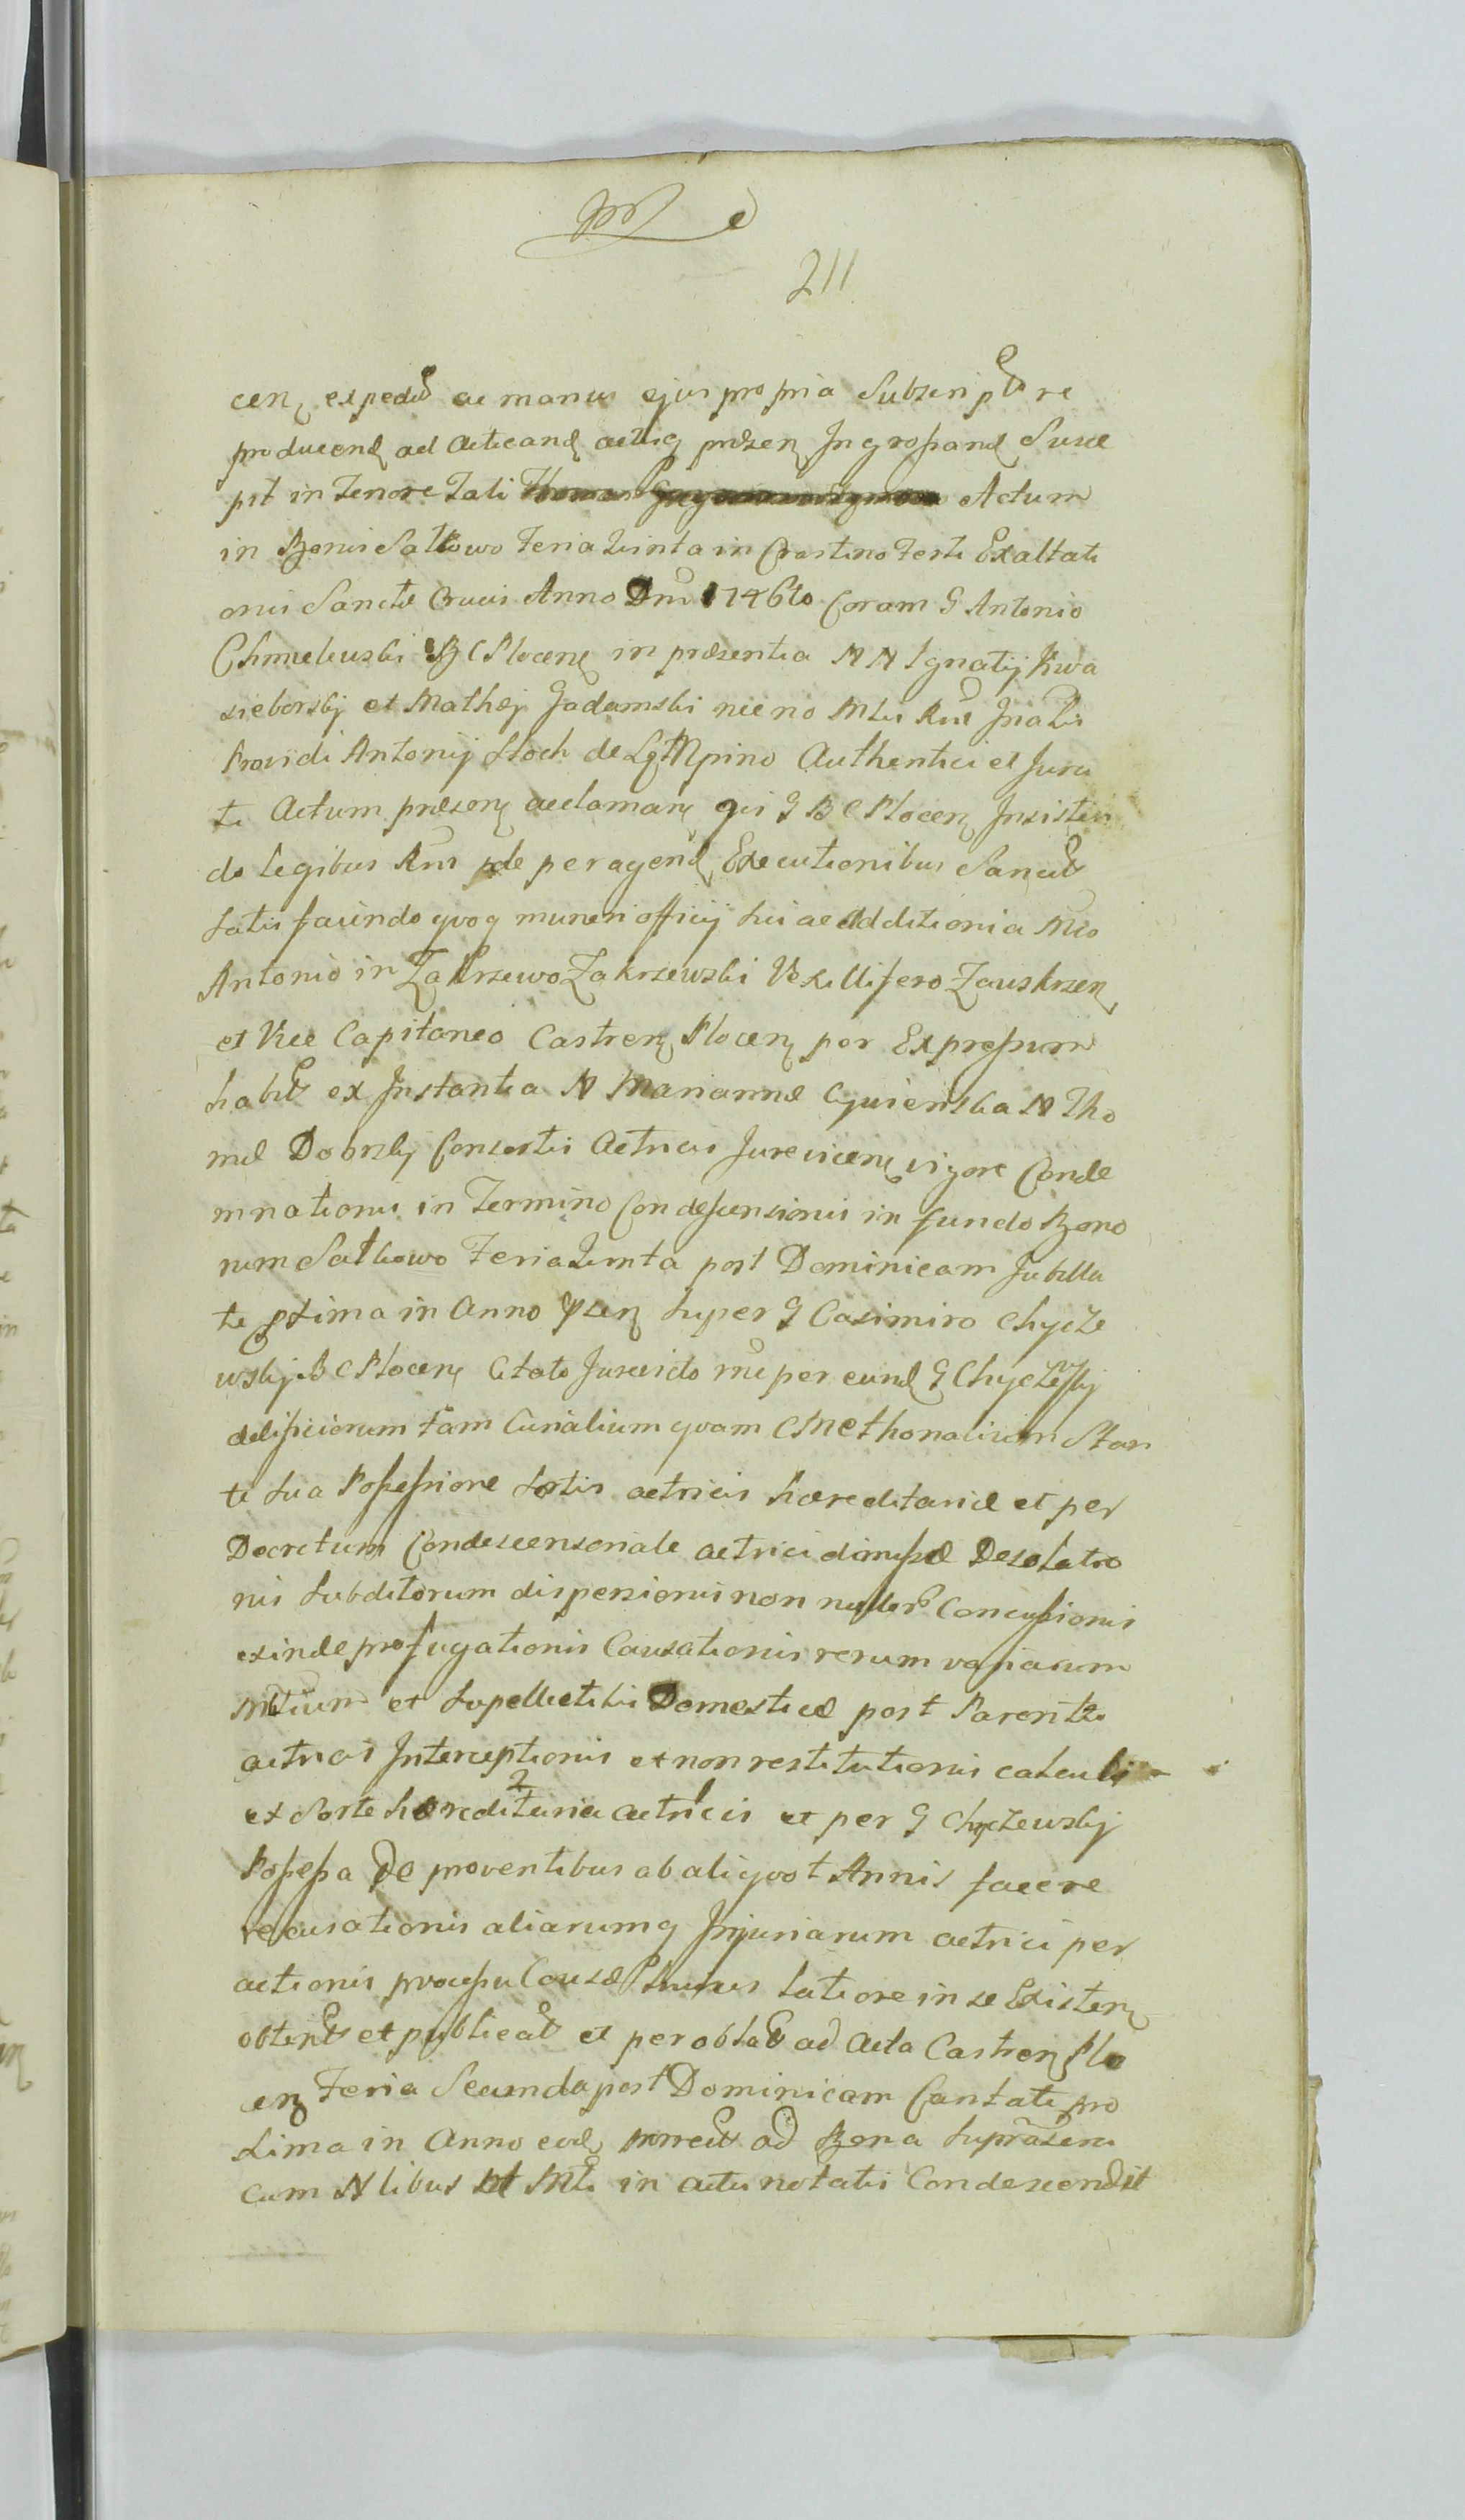 211
cen expedit ac manu ejus propria Subscript re
producend ad acticand actisq præsen Ingrossand Susce
pit in Tenore Tali Actum
in Bonis Satkowo Feria Quinta in Crastino Festi Exaltati
onis Sanctæ Crucis Anno Dni 1746to Coram G Antonio
Chmielewski B C Plocen in præsentia N N Ignatij Kwa
sieborskj et Mathej Gadomski nec no Mlis Rni Gnalis
Providi Antonij Stoch de Authentici et Jura
ti Actum præsen acclaman qui G B C Plocen Insisten
do legibus Rni de peragend Executionibus Sancit
satis faciendo quoq muneri officij sui ac additioni a Mco
Antonio in Zakrzewo Zakrzewski Vexillifero Zauskrzen
et Vice Capitaneo Castren Plocen per Expressum
habit ex Instantia N Mariannæ N Tho
mæ Dobrskj Consortis Actricis Jurevicen vigore Conde
mnationis in Termino Condescensionis in fundo Bono
rum Satkowo Feria Quinta post Dominicam Jubilla
te pxima in Anno psen super G Casimiro Chycze
wskj B C Plocen Citato Jurevicto rne per eund G Chyczewskj
ædificiorum tam Curialium quam CMethonalium Stan
te sua Possessione Sortis actricis hæreditariæ et per
Decretum Condescensoriale actrici dimissæ Desolatio
nis Subditorum dispersionis non nullor Concussionis
exinde profugationis Causationis rerum variarum
et Supellectilis Domesticæ post Parentes
actricis Interceptionis et non restitutionis calculi
ex Sorte hæreditaria actricis et per G Chyczewskj
Possessa De proventibus ab aliquot Annis facere
recusationis aliarumq Injuriarum actrici per
actionis processu Causæ latiore in se Existen
obtent et publicat et per oblat ad Acta Castren Plo
cen Feria Secunda post Dominicam Cantate pro
xima in Anno eod porrect ad Bona Suprascri
cum N libus et Mli in actu notatis Condescendit